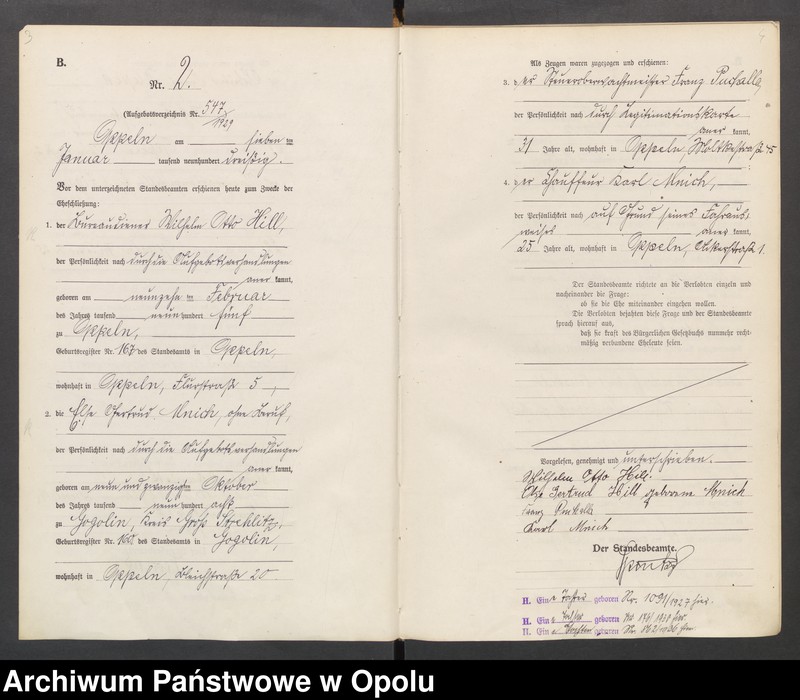 B.
Nr. 2.
(Aufgebotsverzeichnis Nr. 547/1929
Oppeln am sieben ten
Januar tausend neunhundert dreißig.
Vor dem unterzeichneten Standesbeamten erschienen heute zum Zwecke der
Eheschließung:
1. der Bureaudiener Wilhelm Otto Hill,
der Persönlichkeit nach durch die Aufgebotsverhandlungen
aner kannt,
geboren am neunzehn ten Februar
des Jahres tausend neun hundert fünf
zu Oppeln,
Geburtsregister Nr. 167 des Standesamts in Oppeln,
wohnhaft in Oppeln, Flurstraß 5,
2. die Else Gertrud Mnich, ohne Beruf,
der Persönlichkeit nach durch die Aufgebotsverhandlungen
aner kannt,
geboren am neun und zwanzigsten Oktober
des Jahres tausend neun hundert acht
zu Gogolin, Kreis Groß Strehlitz,
Geburtsregister Nr. des Standesamts in Gogolin,
wohnhaft in Oppeln, Bleichstraße 20
Als Zeugen waren zugezogen und erschienen:
3. der Steueroberwachtmeister Franz
der Persönlichkeit nach durch Legitimationskarte
aner kannt,
31 Jahre alt, wohnhaft in Oppeln, Moltkestraß 45
4. der Chauffeur Karl Mnich,
der Persönlichkeit nach auf Grund seines Fahraus-
weises aner kannt,
25 Jahre alt, wohnhaft in Oppeln, 1.
Der Standesbeamte richtete an die Verlobten einzeln und
nacheinander die Frage:
ob sie die Ehe miteinander eingehen wollen.
Die Verlobten bejahten diese Frage und der Standesbeamte
sprach hierauf aus,
daß sie kraft des Bürgerlichen Gesetzbuchs nunmehr recht-
mäßig verbundene Eheleute seien.
Vorgelesen, genehmigt und unterschrieben.
Wilhelm Otto Hill.
Else Gertrud Hill geborene Mnich
Franz
Karl Mnich
Der Standesbeamte.
H. Ein e Tochter geboren Nr. 1091/1927 hier.
H. Ein geboren Nr. hier.
H. Ein e Tochter geboren Nr. hier
Archiwum Państwowe w Opolu